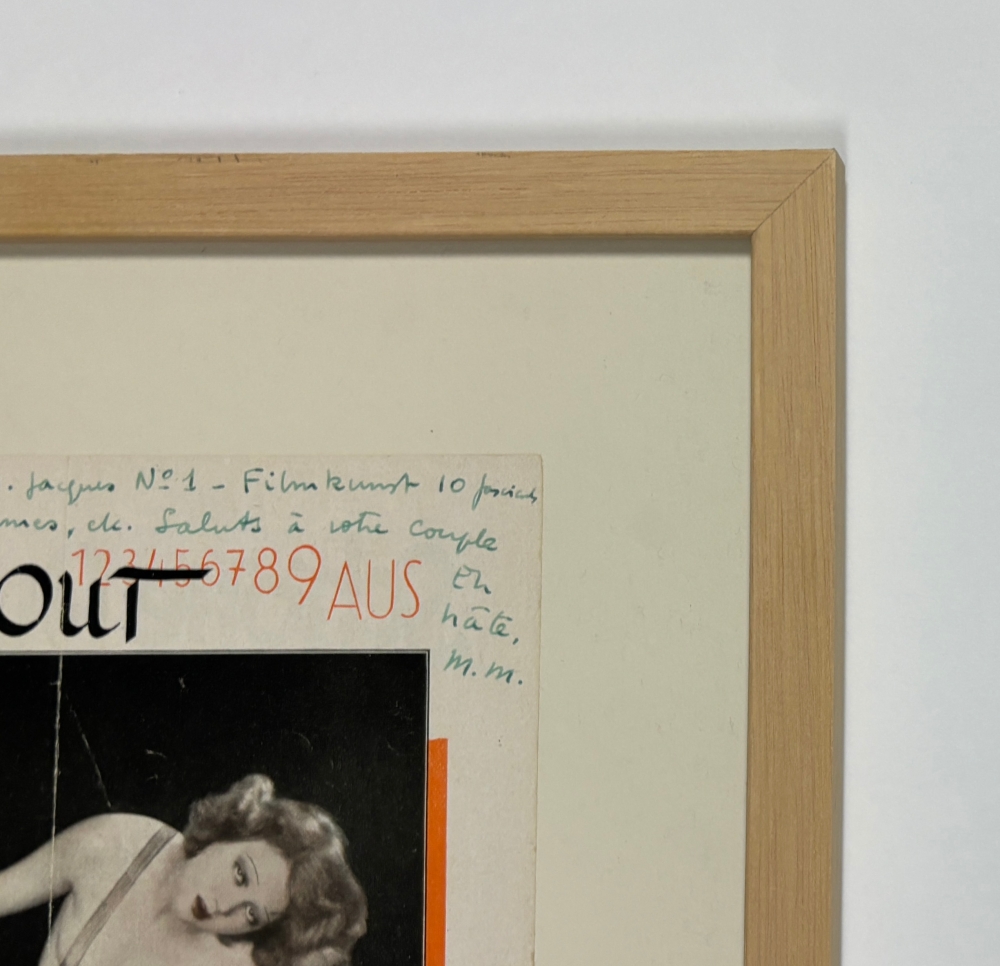 . Jacques Nº 1 - Filmkunst 10 fascicules
mes, etc. Saluts à votre couple
En
hâte,
M.M.
123456789 AUS
OUT